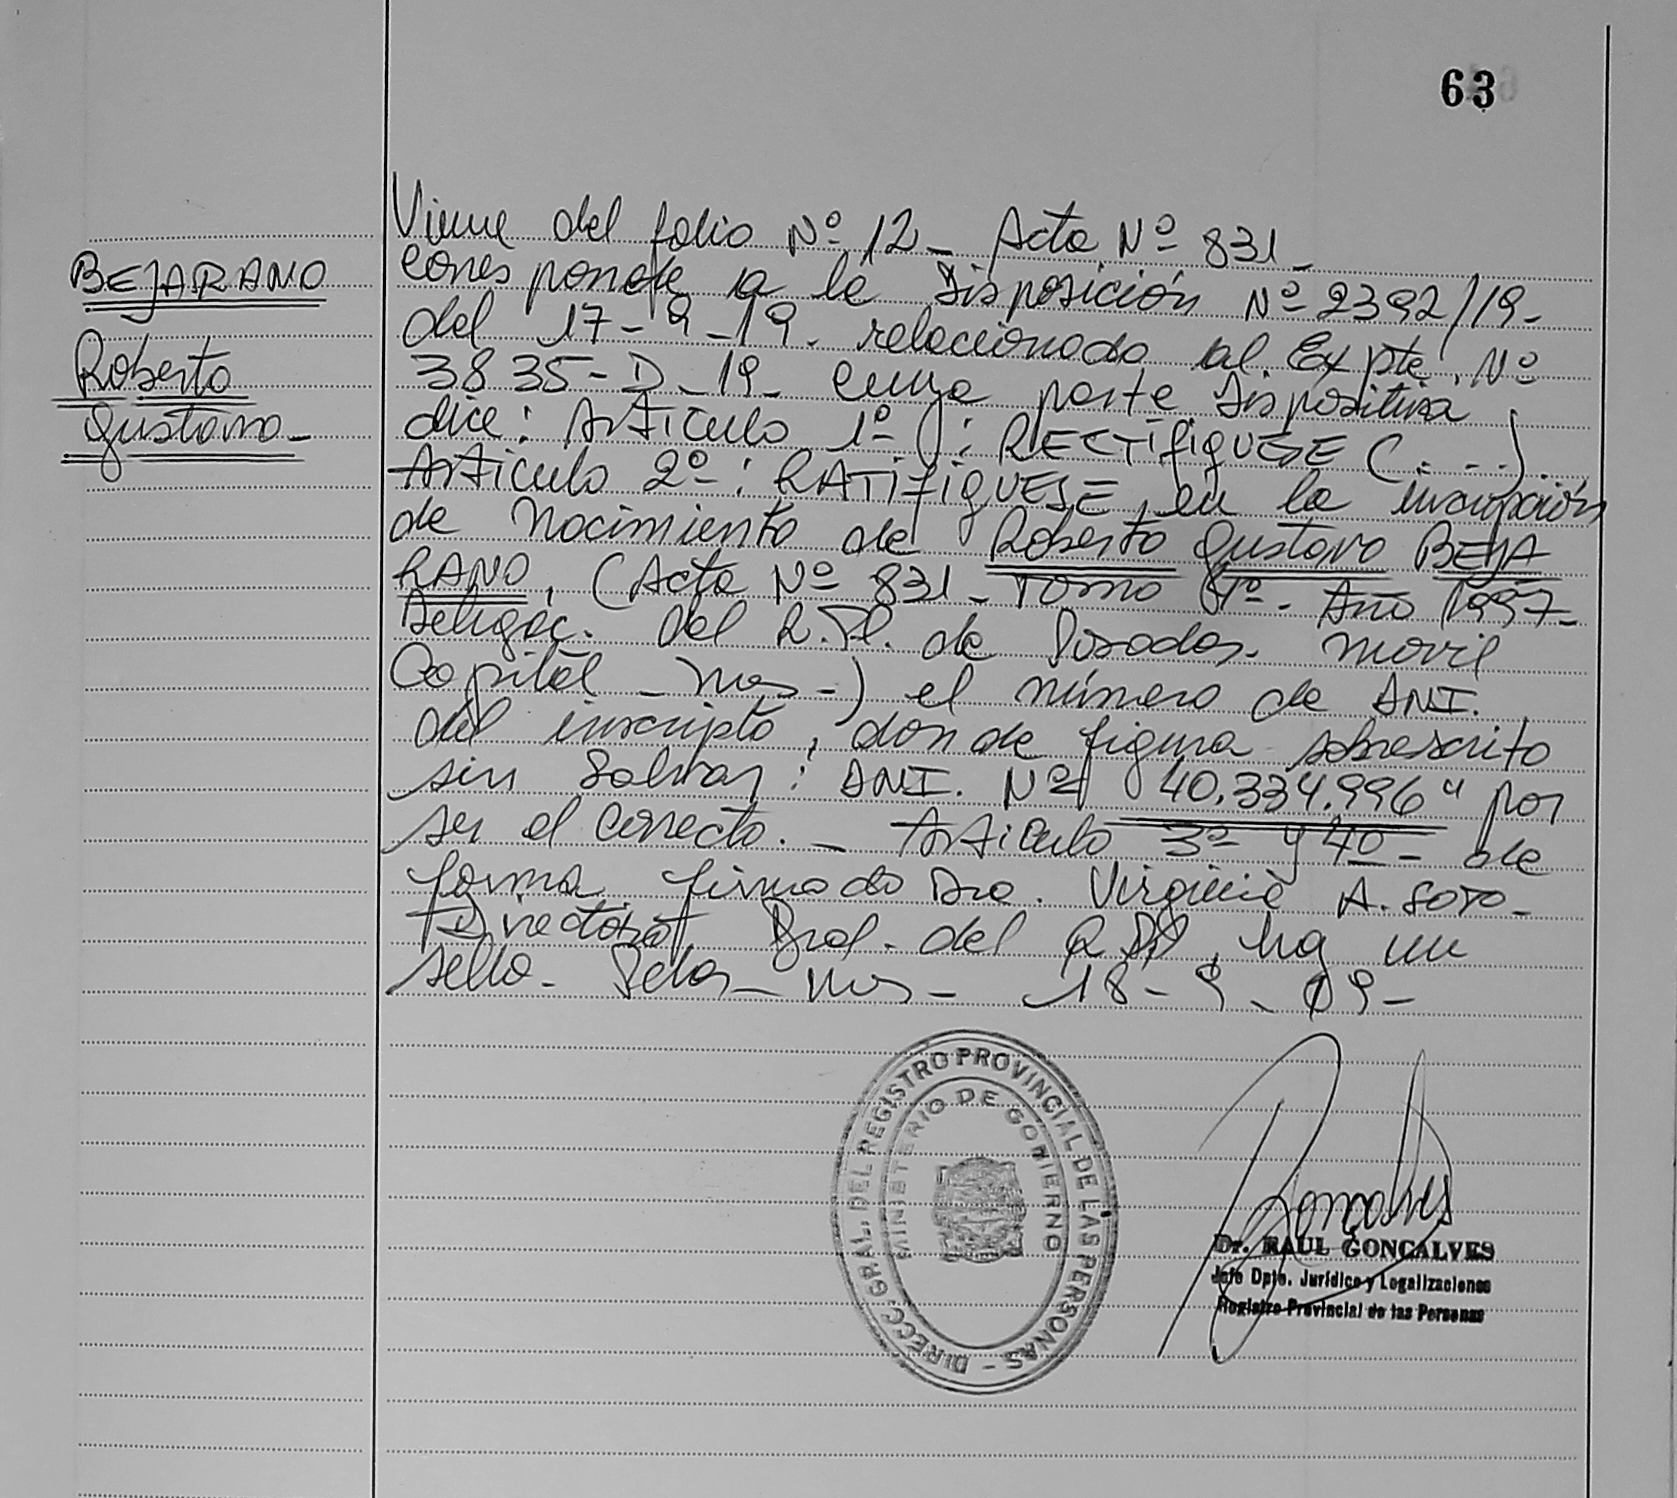 63
Viene del folio Nº 12 - Acta Nº 831 -
BEJARANO
Roberto
Gustavo -
corresponde a la Disposición Nº 2392/19 -
del 17 - 9 - 19 - relacionado al Expte. Nº
3835 - D - 19 - cuya parte Dispositiva
dice: Articulo 1º: RECTIFIQUESE (...).
Articulo 2º: RATIFIQUESE, en la inscripción
de Nacimiento de Roberto Gustavo BEJA
RANO, (Acta Nº 831 - Tomo 1º - Año 1997 -
Delegac. del R.P. de Posadas - Movil
Capital - Mnes -) el número de DNI.
del inscripto, donde figura sobrescrito
sin salvar: DNI. Nº "40.334.996" por
ser el correcto. - Articulo 3º y 4º - de
forma firmado Dra. Virginia A. Soto -
Directora Gral. del R.P.P, hay un
sello - Pdas - Mnes - 18 - 9 - 19 -
DIRECC. GRAL. DEL REGISTRO PROVINCIAL DE LAS PERSONAS -
MINISTERIO DE GOBIERNO
Dr. RAUL GONCALVES
Jefe Dpto. Jurídico y Legalizaciones
Registro Provincial de las Personas